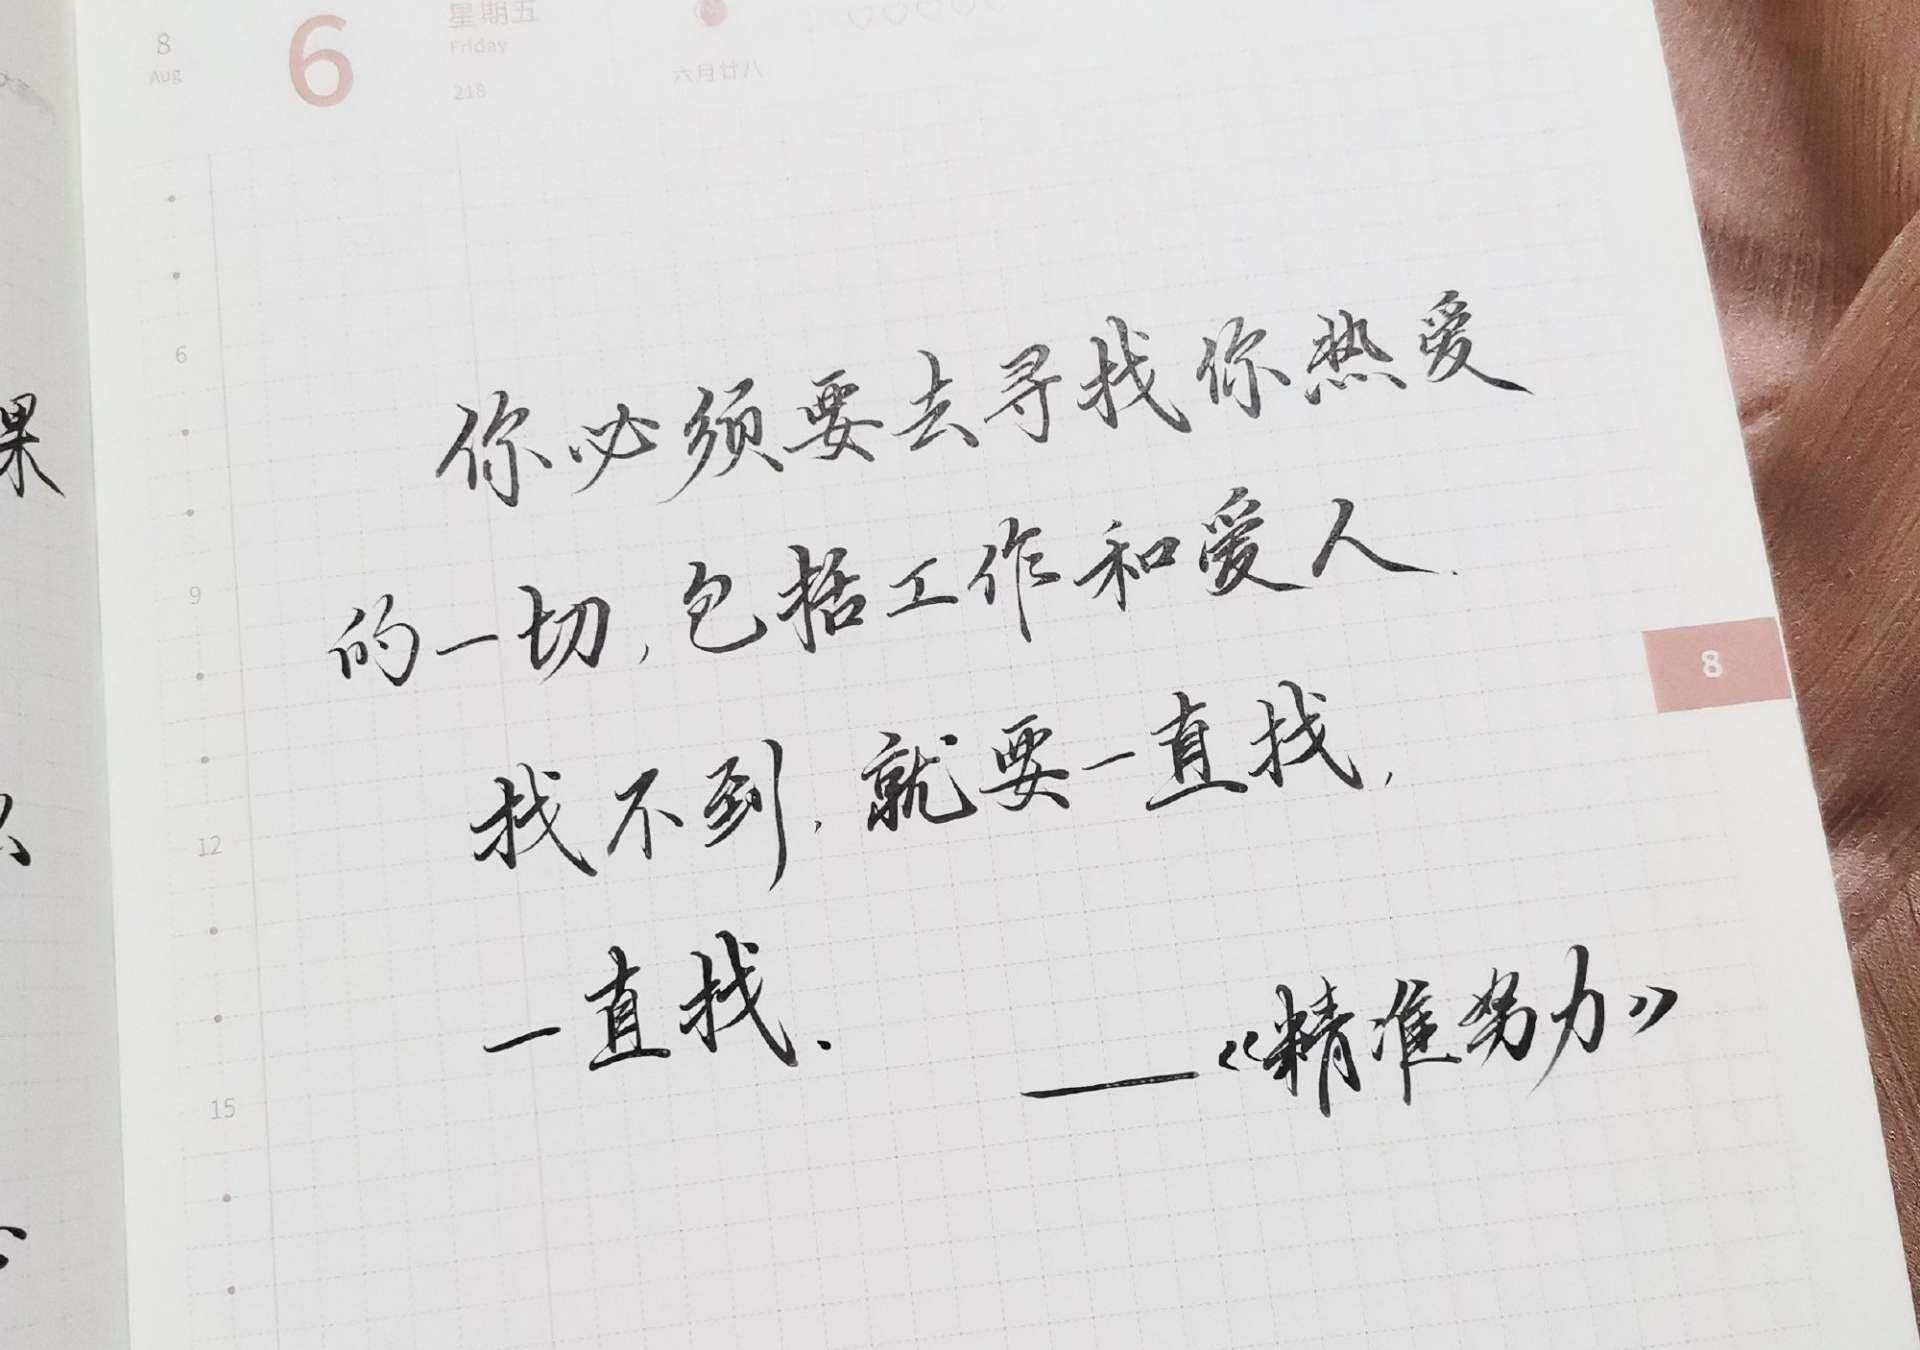 8
Aug
6
星期五
Friday
218
六月廿八
6
9
12
15
8
果
你必须要去寻找你热爱
的一切,包括工作和爱人.
找不到,就要一直找,
一直找.
——《精准努力》